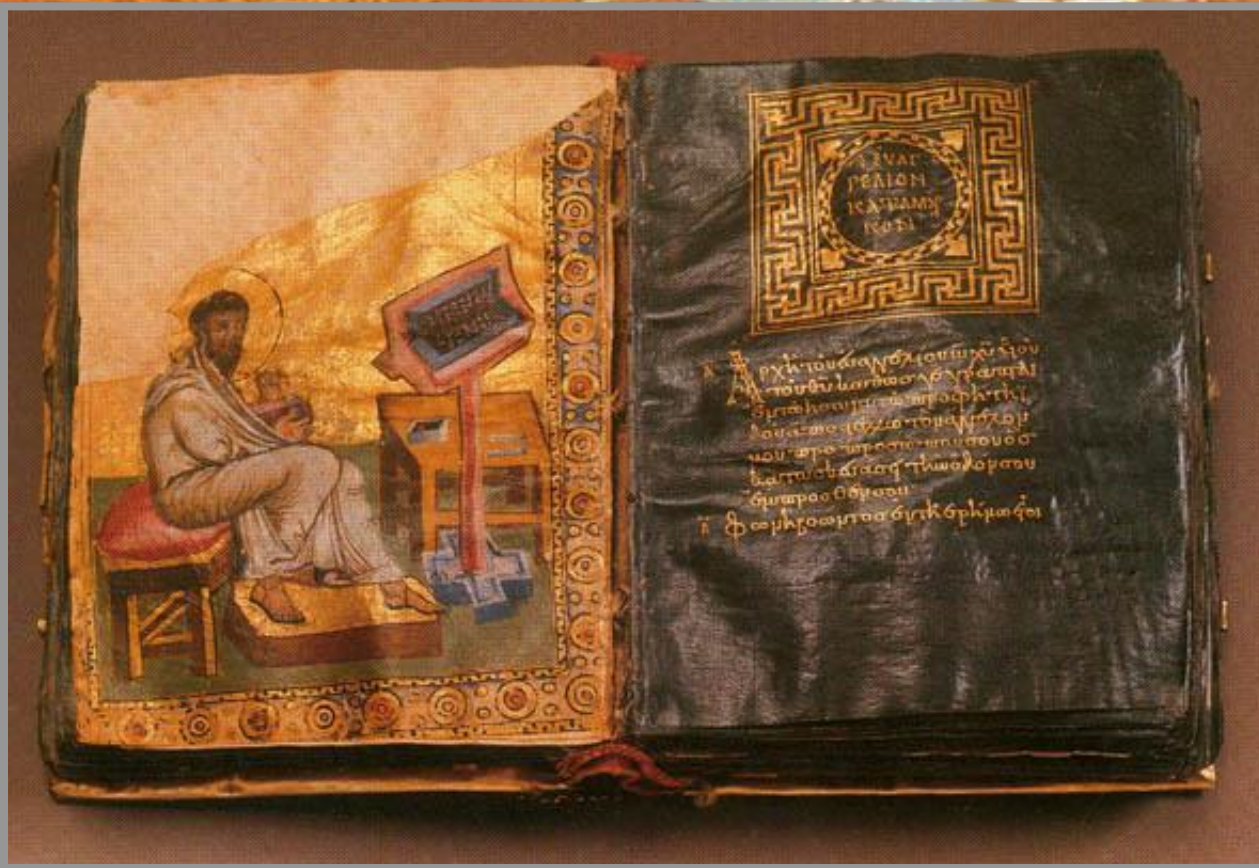 ΕΥΑΓ
ΓΕΛΙΟΝ
ΚΑΤΑ ΜΑΡ
ΚΟΝ
Ἀρχὴ τοῦ εὐαγγελίου ιυ χυ υἱοῦ
τοῦ θυ καθὼς γέγραπται
ἐν τῶ ησαΐα τῶ προφήτη ἰ
δοὺ ἀποστέλλω τὸν ἄγγελόν
μου πρὸ προσώπου σου ὃς
κατασκευάσει τὴν ὁδόν σου
ἔμπροσθέν σου
Φωνὴ βοῶντος ἐν τῇ ἐρήμω ἑτοι